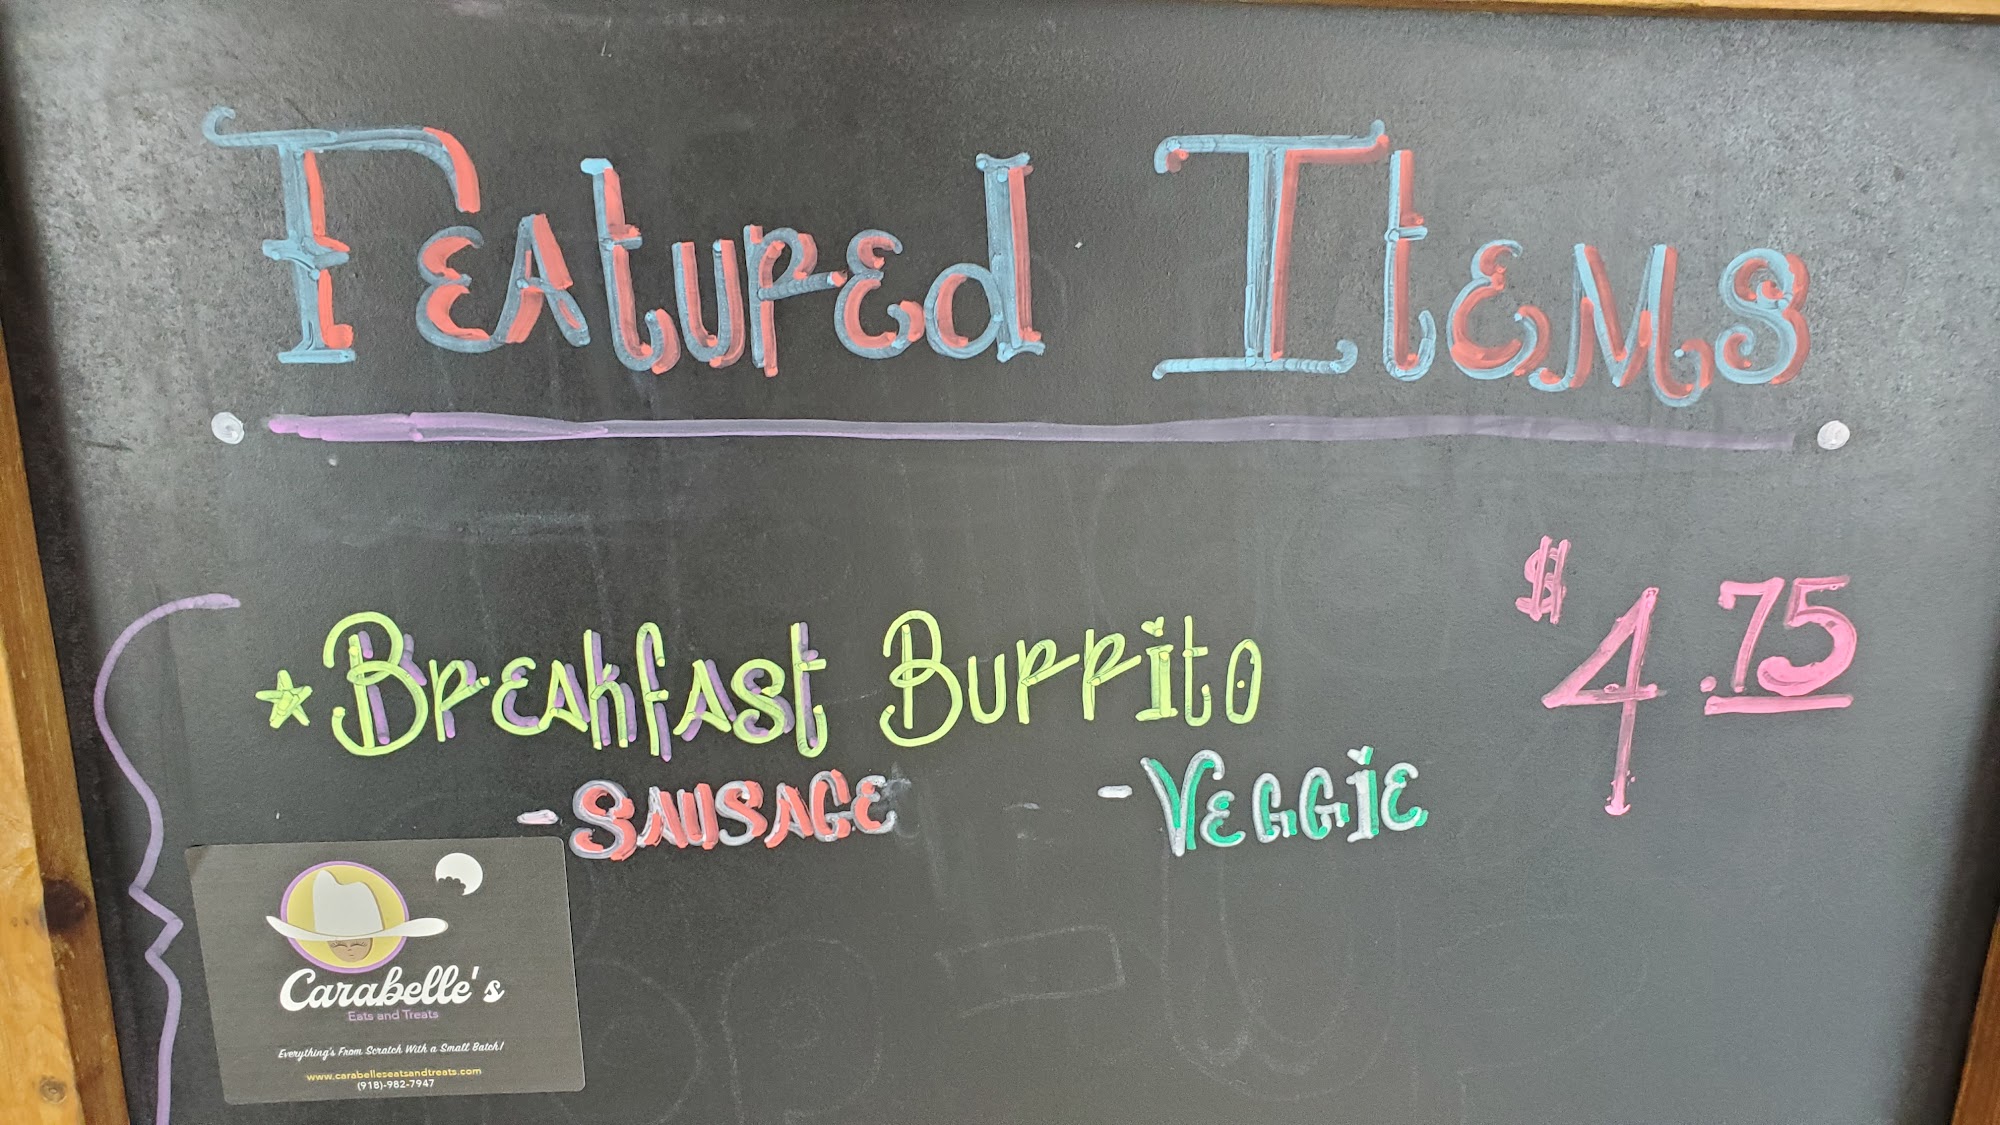 Featured Items
Breakfast Burrito $4.75
- Sausage - Veggie
Carabelle's
Eats and Treats
Everything's From Scratch With a Small Batch!
www.carabelleseatsandtreats.com
(918)-982-7947